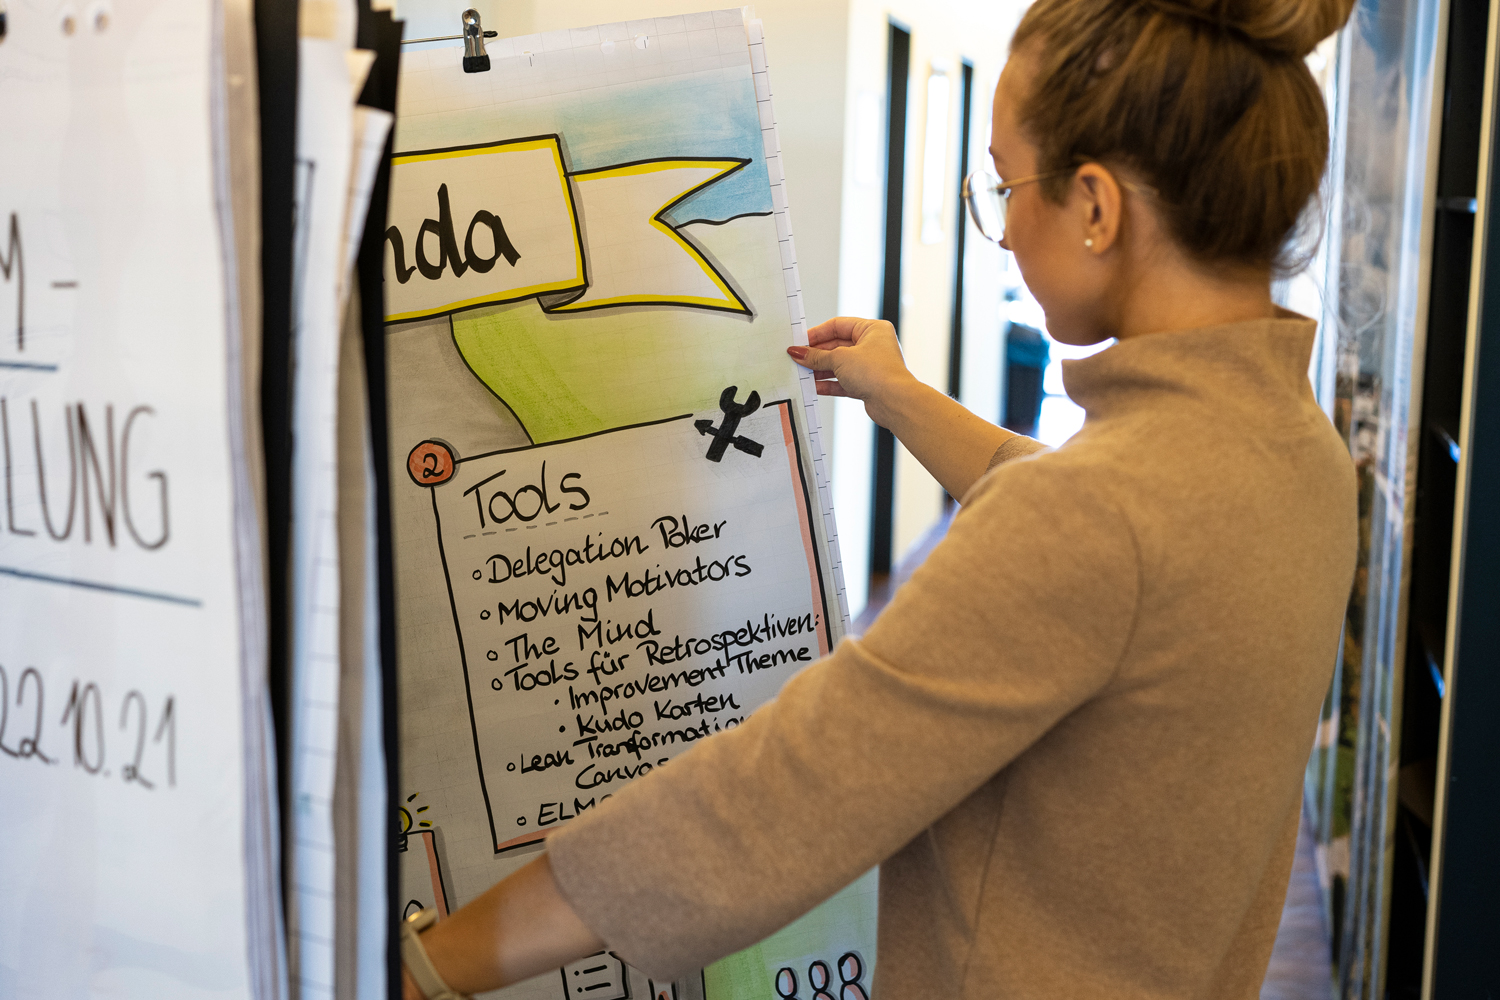 M-
LUNG
22.10.21
nda
2
Tools
Delegation Poker
Moving Motivators
The Mind
Tools für Retrospektiven:
Improvement Theme
Kudo Karten
Lean Transformation
Canvas
ELMO